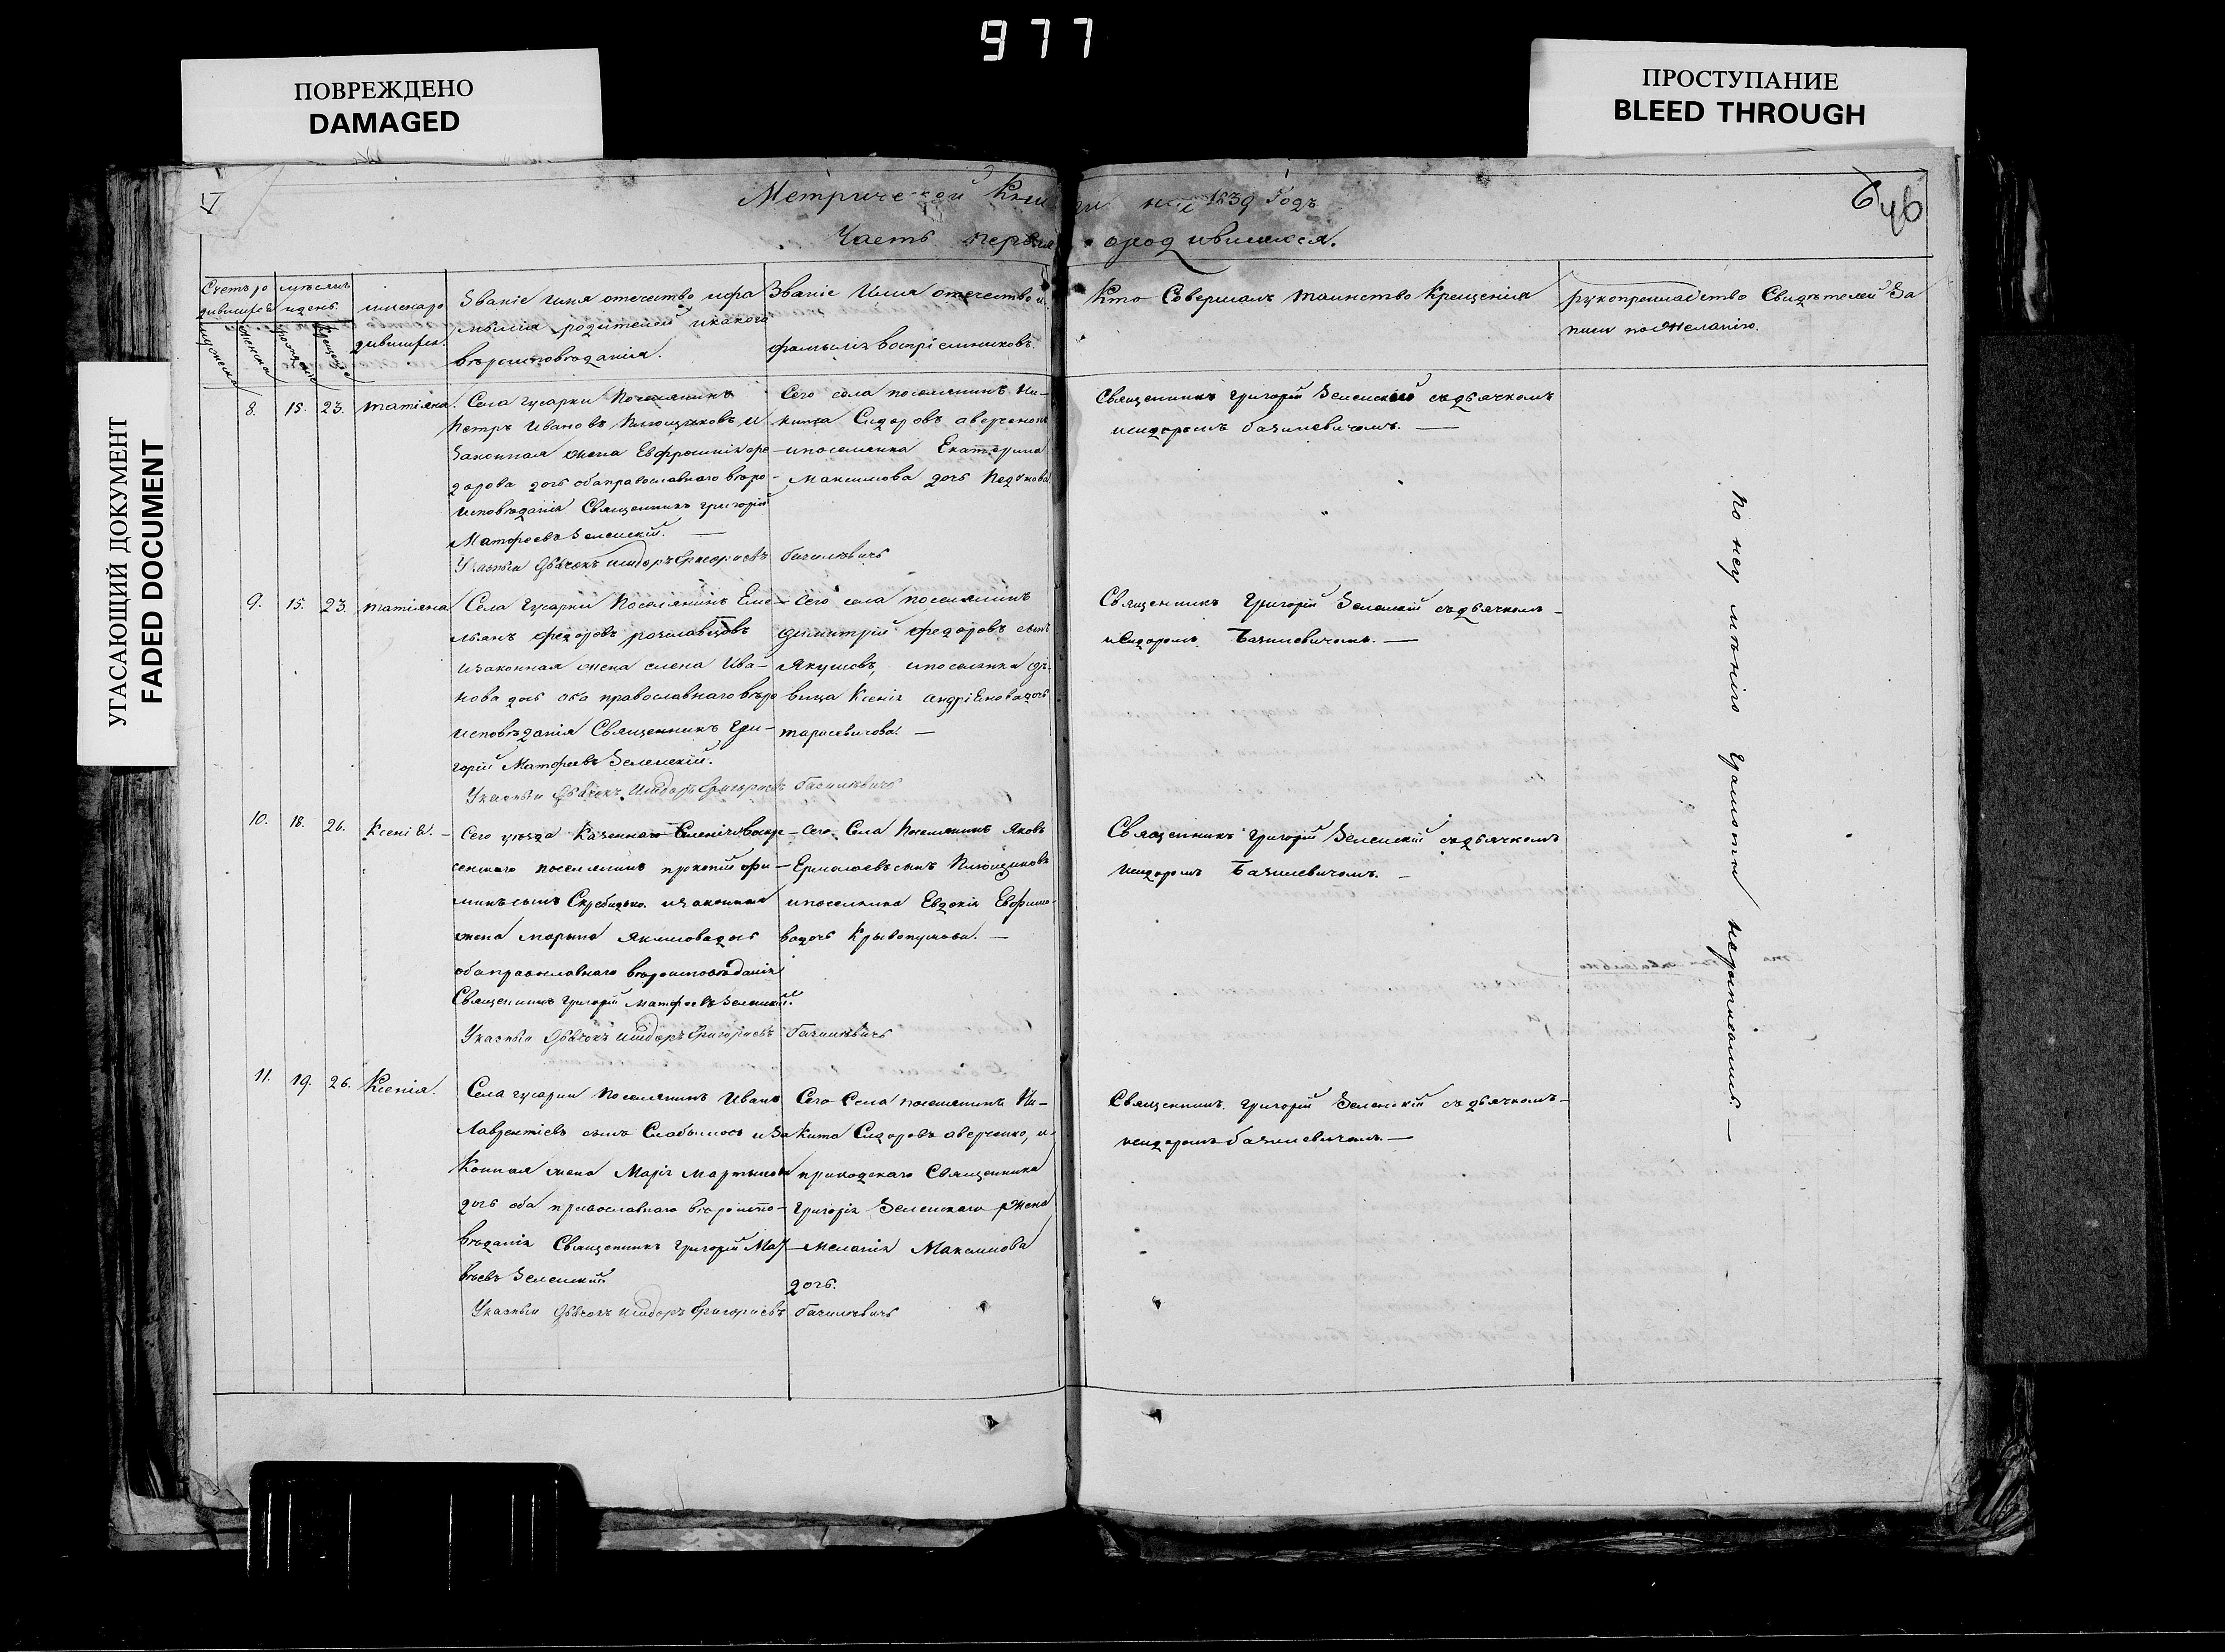 977
ПОВРЕЖДЕНО
DAMAGED
ПРОСТУПАНИЕ
BLEED THROUGH
УГАСАЮЩИЙ ДОКУМЕНТ
FADED DOCUMENT
46
Метрической Книги на 1839 Годъ
Часть первая ородившихся.
Счетъ родившихся
мужеска
женска
мѣсяцъ и день
рожденіе
крещеніе
имена родившихся.
Званіе Имя отечество ифа
мылія родителей икакого
вѣроисповѣданія.
Званіе Имя отечество и
фамылія воспріемниковъ.
Кто Совершалъ таинство Крещенія
рукоприкладство Свидѣтелей За
писи пожеланію.
8. 15. 23. татіяна.
Села гусарки Поселянинъ
Петръ Ивановъ Плющиковъ и
Законная жена Евфросинія фе
дорова дочь обаправославнаго вѣро-
исповѣданія Священникъ григорій
Матфеевъ Зеленскій.
Указный Дьячокъ Исидоръ Григориевъ Базилевичъ
Сего села поселянинъ Ни-
кита Сидоровъ аверченко
ипоселянка Екатерина
Максимова дочь
Священникъ григорій Зеленскій съдьячкомъ
исидоромъ базилевичомъ.
9. 15. 23. татіяна
Села Гусарки Поселянинъ Еме-
льянъ федоровъ рославцовъ
изаконная жена елена Ива-
нова дочь оба православнаго вѣро
исповѣданія Священникъ гри-
горій Матфеевъ Зеленскій.
Указный Дьячокъ Исидоръ Григориевъ Базилевичъ
Сего села поселянинъ
димитрій федоровъ сынъ
Якушовъ, ипоселянка дѣ-
вица Ксенія андріеновадочь
тарасевичова.
Священникъ Григорій Зеленскій съдьячкомъ
исидоромъ Базилевичомъ.
10. 18. 26. Ксенія.
Сего уѣзда Казеннаго Селенія воскре
сенскаго поселянинъ прокопій
сынъ изаконная
жена марына Якимовадочь
обаправославнаго вѣроисповѣданія
Священникъ григорій матфеевъ Зеленскій.
Указный Дьячокъ Исидоръ Григориевъ Базилевичъ
Сего Села Поселянинъ Яковъ
Ермолаевъ сынъ Плющиковъ
ипоселянка Евдокія Ефимо-
вадочь
Священникъ григорій Зеленскій съдьячкомъ
Исидоромъ Базилевичомъ.
11. 19. 26. Ксенія.
Села гусарки Поселянинъ Иванъ
Лаврентіевъ сынъ иза
Конная жена Марія Мартынова
дочь оба православнаго вѣроиспо-
вѣданія Священникъ григорій Мат
вѣевъ Зеленскій
Указный Дьячокъ Исидоръ Григориевъ Базилевичъ
Сего Села поселянинъ Ни-
Кита Сидоровъ аверченко, и
приходскаго Священника
Григорія Зеленскаго жена
меланія Максимова
дочь.
Священникъ григорій Зеленскій съдьячкомъ
исидоромъ базилевичомъ.
По неумѣнію грамоты неподписались.